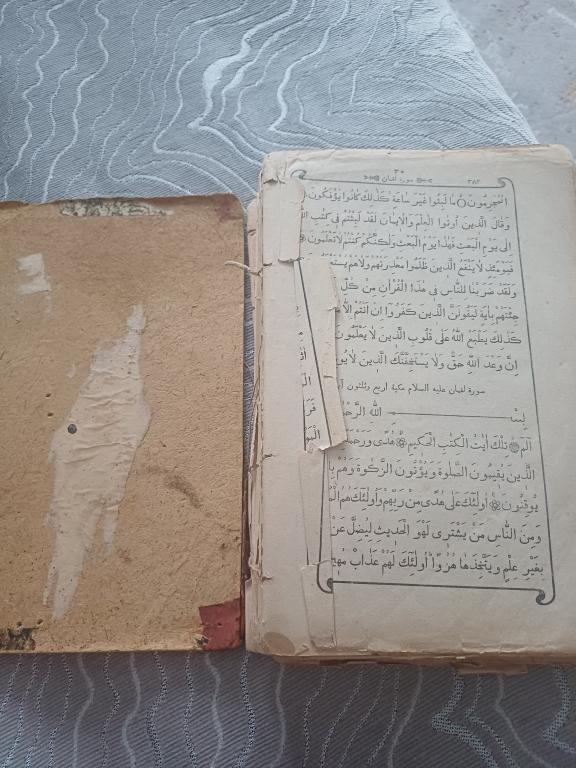 ٣٨٢ سورة لقمان ٣٠
الْمُجْرِمُونَ مَا لَبِثُوا غَيْرَ سَاعَةٍ كَذٰلِكَ كَانُوا يُؤْفَكُونَ
وَقَالَ الَّذِينَ اُوتُوا الْعِلْمَ وَالْاِيمَانَ لَقَدْ لَبِثْتُمْ فِى كِتَابِ
اِلٰى يَوْمِ الْبَعْثِ فَهٰذَا يَوْمُ الْبَعْثِ وَلٰكِنَّكُمْ كُنْتُمْ لَا تَعْلَمُونَ
فَيَوْمَئِذٍ لَا يَنْفَعُ الَّذِينَ ظَلَمُوا مَعْذِرَتُهُمْ وَلَا هُمْ
وَلَقَدْ ضَرَبْنَا لِلنَّاسِ فِى هٰذَا الْقُرْاٰنِ مِنْ كُلِّ
جِئْتَهُمْ بِاٰيَةٍ لَيَقُولَنَّ الَّذِينَ كَفَرُوا اِنْ اَنْتُمْ اِلَّا
كَذٰلِكَ يَطْبَعُ اللّٰهُ عَلٰى قُلُوبِ الَّذِينَ لَا يَعْلَمُونَ
اِنَّ وَعْدَ اللّٰهِ حَقٌّ وَلَا يَسْتَخِفَّنَّكَ الَّذِينَ لَا
سورة لقمان عليه السلام مكية اربع وثلثون
بِسْمِ اللّٰهِ
الٓمٓ تِلْكَ اٰيَاتُ الْكِتَابِ الْحَكِيمِ هُدًى وَرَحْمَةً
الَّذِينَ يُقِيمُونَ الصَّلٰوةَ وَيُؤْتُونَ الزَّكٰوةَ وَهُمْ
يُوقِنُونَ اُولٰئِكَ عَلٰى هُدًى مِنْ رَبِّهِمْ وَاُولٰئِكَ هُمُ
وَمِنَ النَّاسِ مَنْ يَشْتَرِى لَهْوَ الْحَدِيثِ لِيُضِلَّ عَنْ
بِغَيْرِ عِلْمٍ وَيَتَّخِذَهَا هُزُوًا اُولٰئِكَ لَهُمْ عَذَابٌ